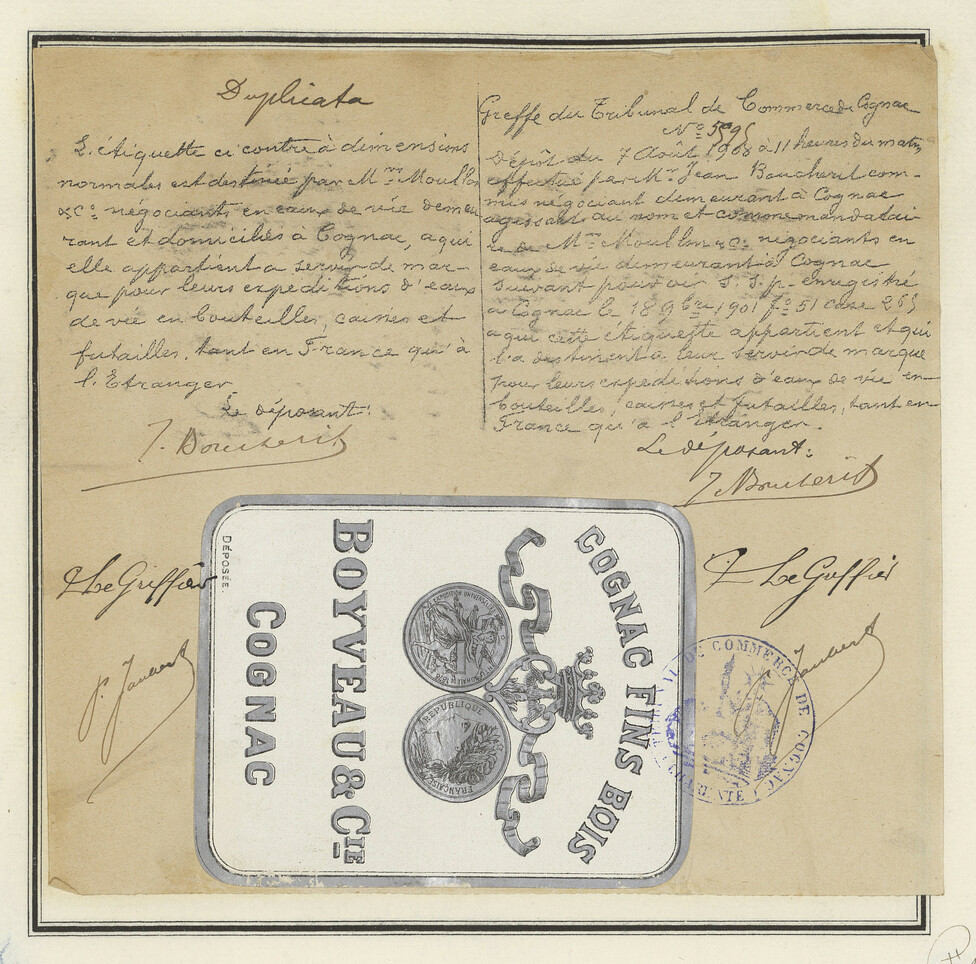 Duplicata
L'étiquette ci contre à dimensions
normales est destinée par Mrs Moullon
& Co négociants en eaux de vie demeu
rant et domiciliés à Cognac, a qui
elle appartient a servir de mar-
que pour leurs expeditions d'eaux
de vie en bouteilles, caisses et
futailles, tant en France qu'à
l'Etranger
Le déposant:
J. Boucherit
Greffe du Tribunal de Commerce de Cognac
No 5595
Dépôt du 7 Août 1908 à 11 heures du matin
effectué par Mr Jean Boucherit com-
mis négociant demeurant à Cognac
agissant au nom et comme mandatai
re de Mrs Moullon & Co négociants en
eaux de vie demeurant à Cognac
suivant pouvoir S. S. p. enregistré
à Cognac le 18 9bre 1901 fo 51 case 265
a qui cette étiquette appartient et qui
l'a destinent a leur servir de marque
pour leurs expeditions d'eaux de vie en
bouteilles, caisses et futailles, tant en
France qu'à l'Etranger.
Le déposant:
J Boucherit
Le Greffier
P. Jaubert
Le Greffier
Jaubert
COGNAC FINS BOIS
EXPOSITION UNIVERSELLE
1878
REPUBLIQUE
FRANCAISE
BOYVEAU & CIE
COGNAC
DÉPOSÉE.
TRIBUNAL DE COMMERCE DE COGNAC